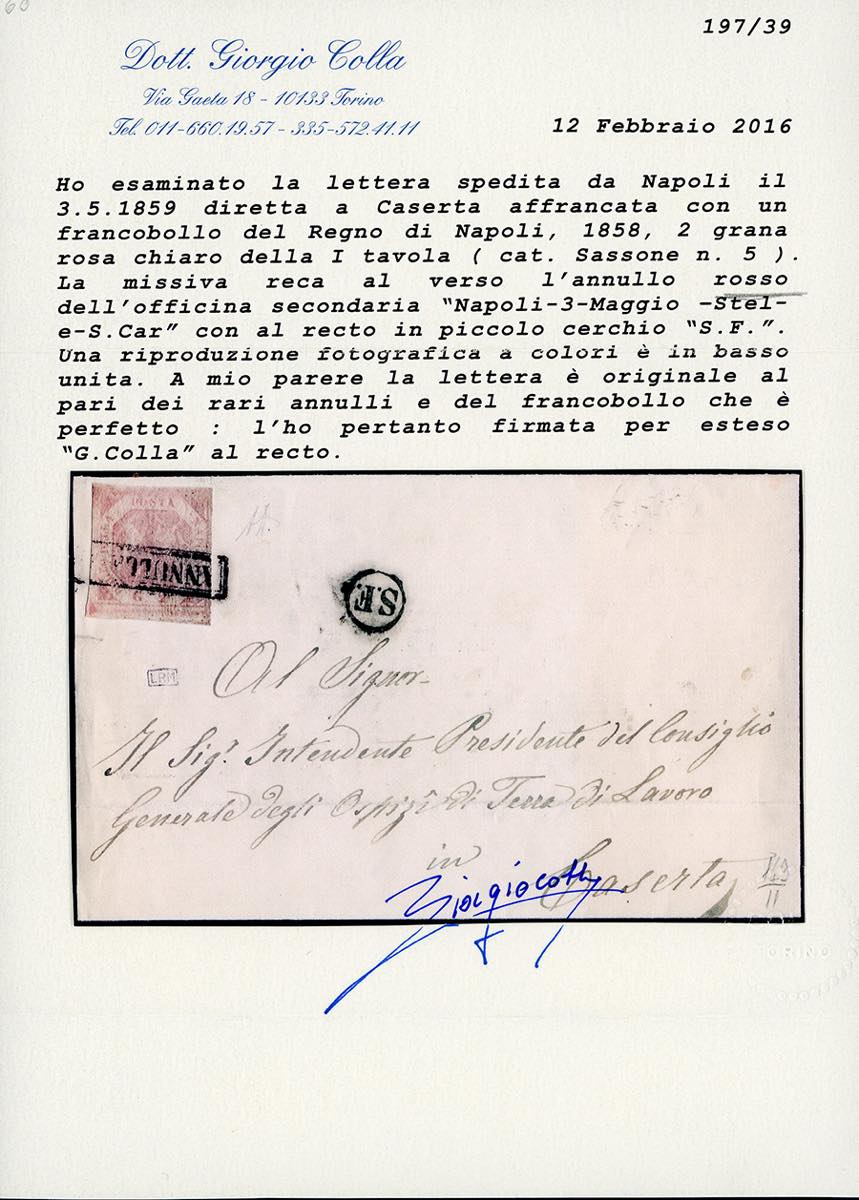 60
197/39
Dott. Giorgio Colla
Via Gaeta 18 - 10133 Torino
Tel. 011-660.19.57 - 335-572.41.11
12 Febbraio 2016
Ho esaminato la lettera spedita da Napoli il
3.5.1859 diretta a Caserta affrancata con un
francobollo del Regno di Napoli, 1858, 2 grana
rosa chiaro della I tavola ( cat. Sassone n. 5 ).
La missiva reca al verso l'annullo rosso
dell'officina secondaria "Napoli-3-Maggio -Stel-
e-S.Car" con al recto in piccolo cerchio "S.F.".
Una riproduzione fotografica a colori è in basso
unita. A mio parere la lettera è originale al
pari dei rari annulli e del francobollo che è
perfetto : l'ho pertanto firmata per esteso
"G.Colla" al recto.
POSTA
ANNULLA
S.F.
LRM
Al Signor
Il Sig.r Intendente Presidente del Consiglio
Generale degli Ospizi di Terra di Lavoro
in
Caserta
Giorgio Colla
TORINO